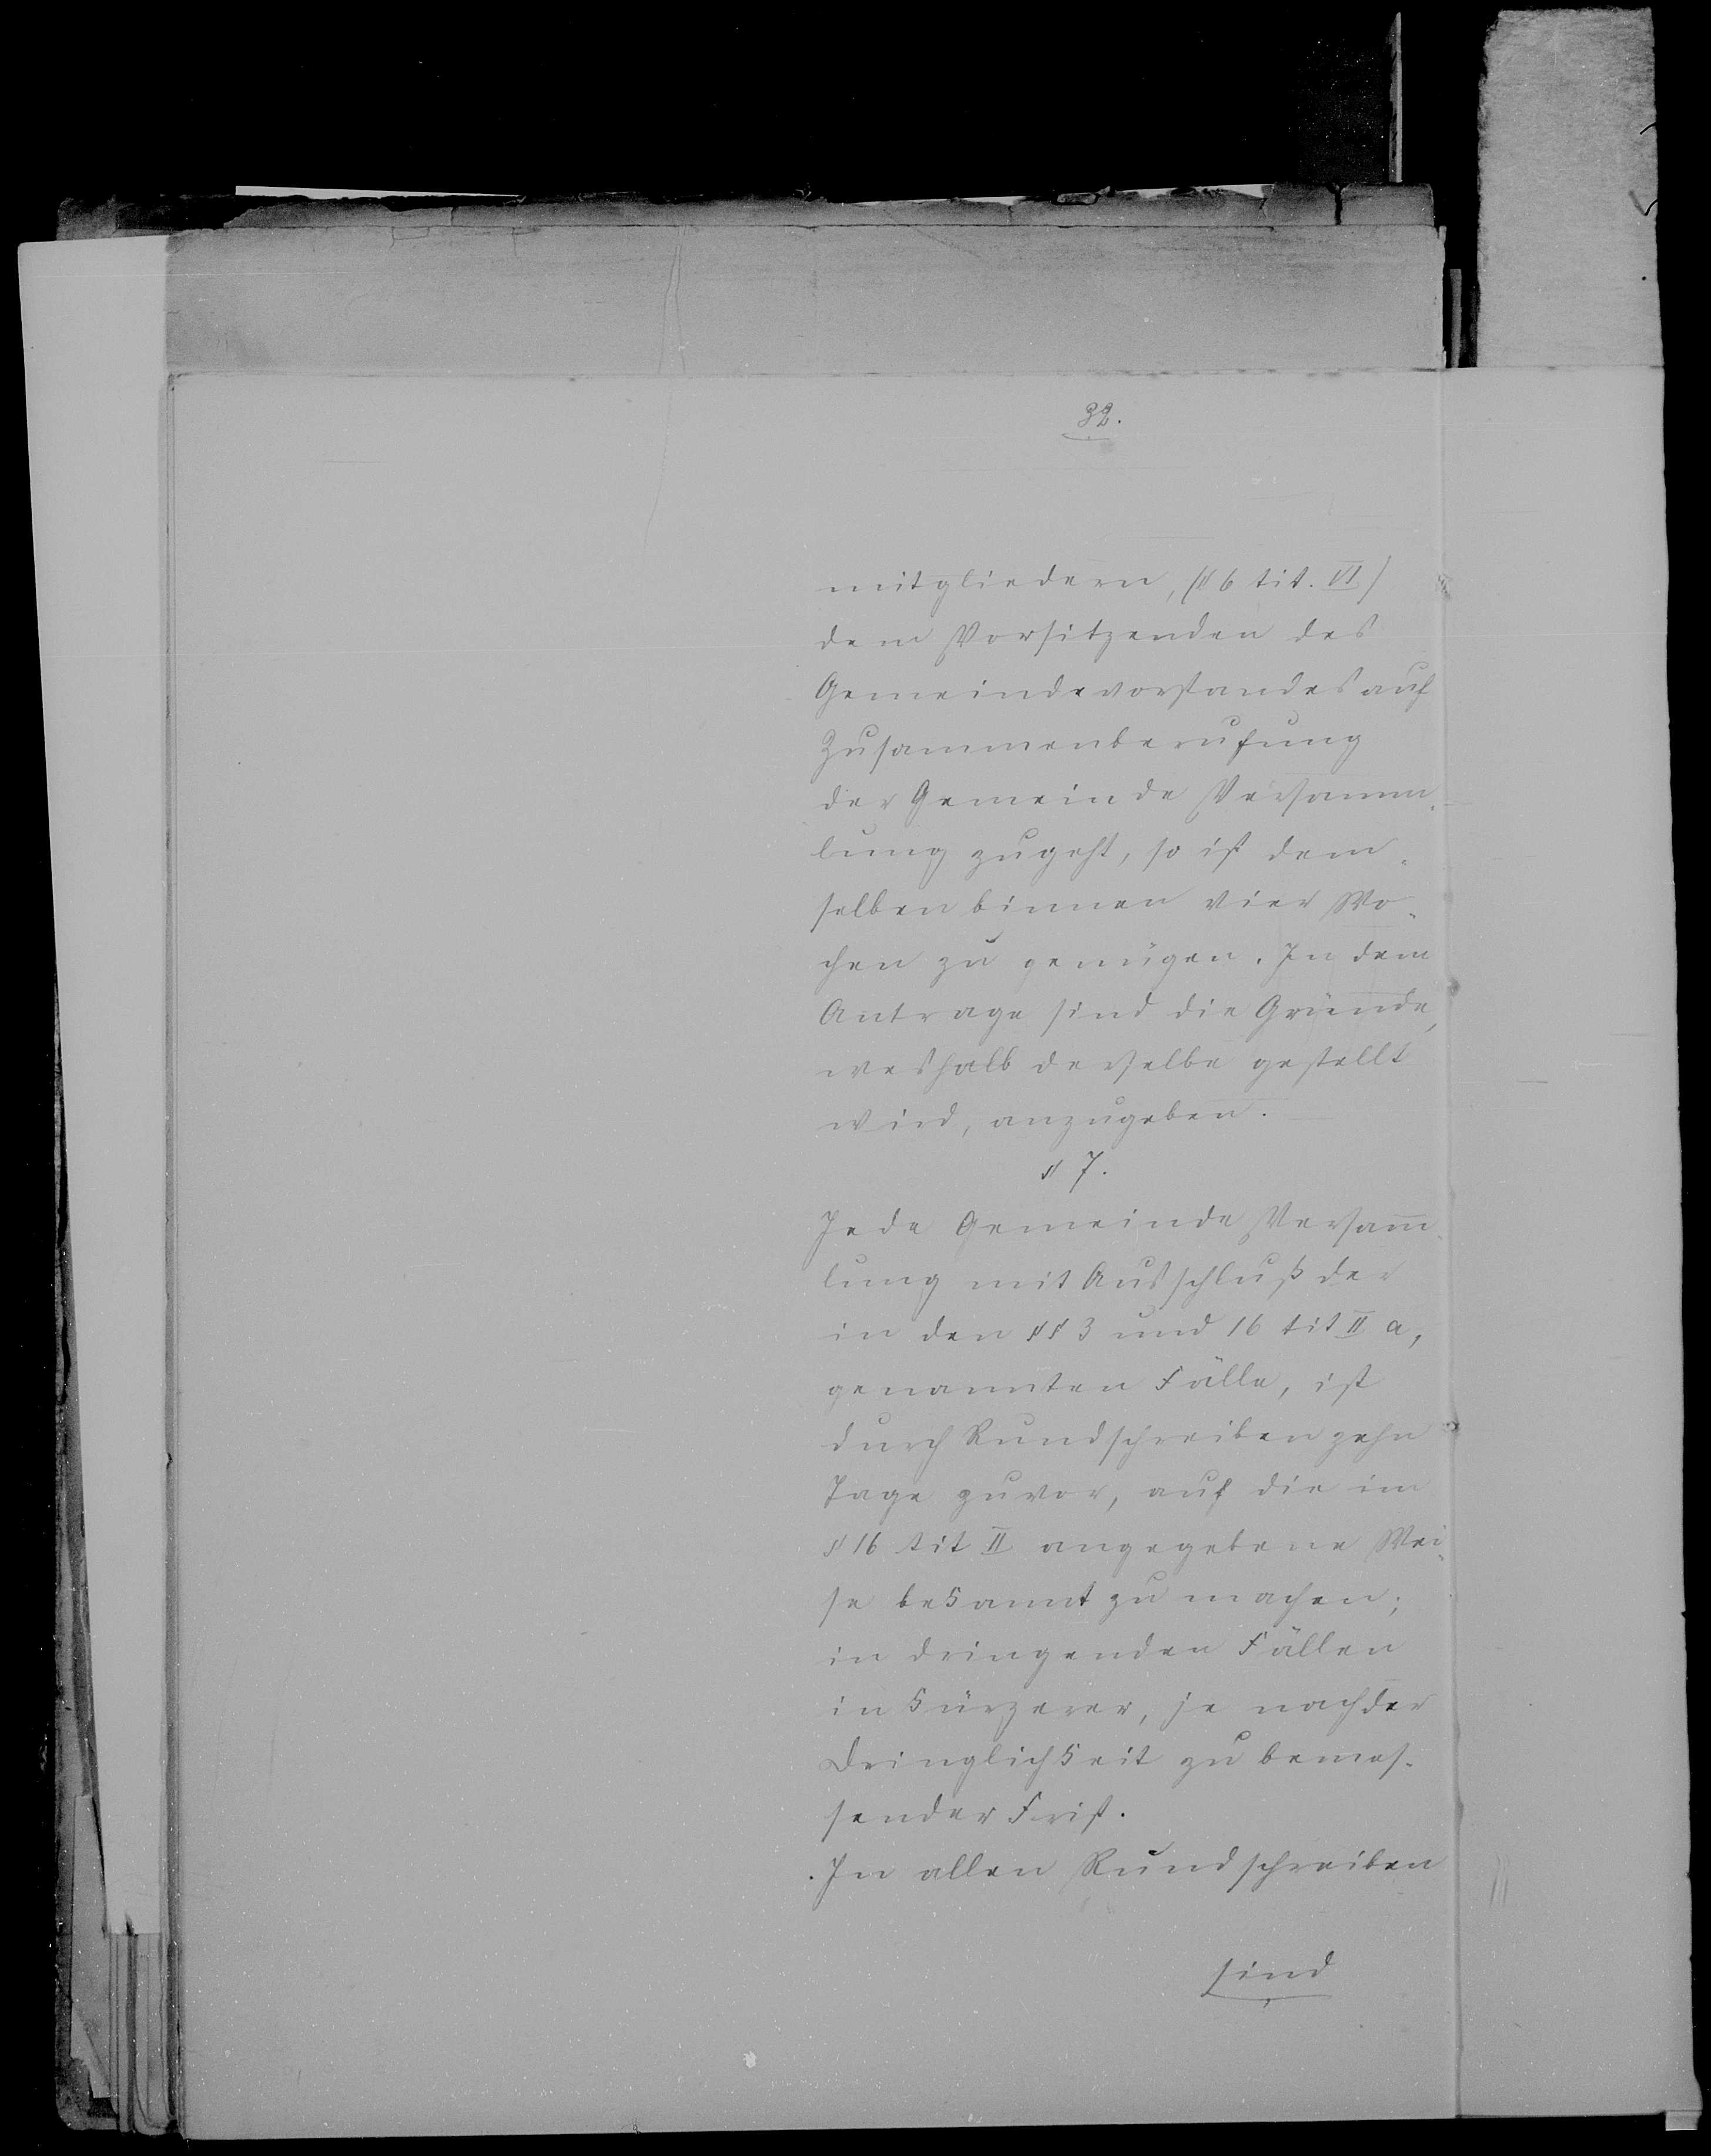 32.
mitgliedern, (§ 6 tit. VI)
dem Vorsitzenden des
Gemeindevorstandes auf
Zusammenberufung
der Gemeinde Versamm-
lung zugeht, so ist dem-
selben binnen vier Wo-
chen zu genügen. In dem
Antrage sind die Gründe,
weshalb derselbe gestellt
wird, anzugeben.
§ 7.
Jede Gemeinde Versam̅-
lung mit Ausschluß der
in den §§ 3 und 16 tit II a,
genannten Fälle, ist
durch Rundschreiben zehn
Tage zuvor, auf die im
§ 16 tit II angegebene Wei-
se bekannt zu machen;
in dringenden Fällen
in kürzerer, je nach der
Dringlichkeit zu bemes-
sender Frist.
In allen Rundschreiben
sind